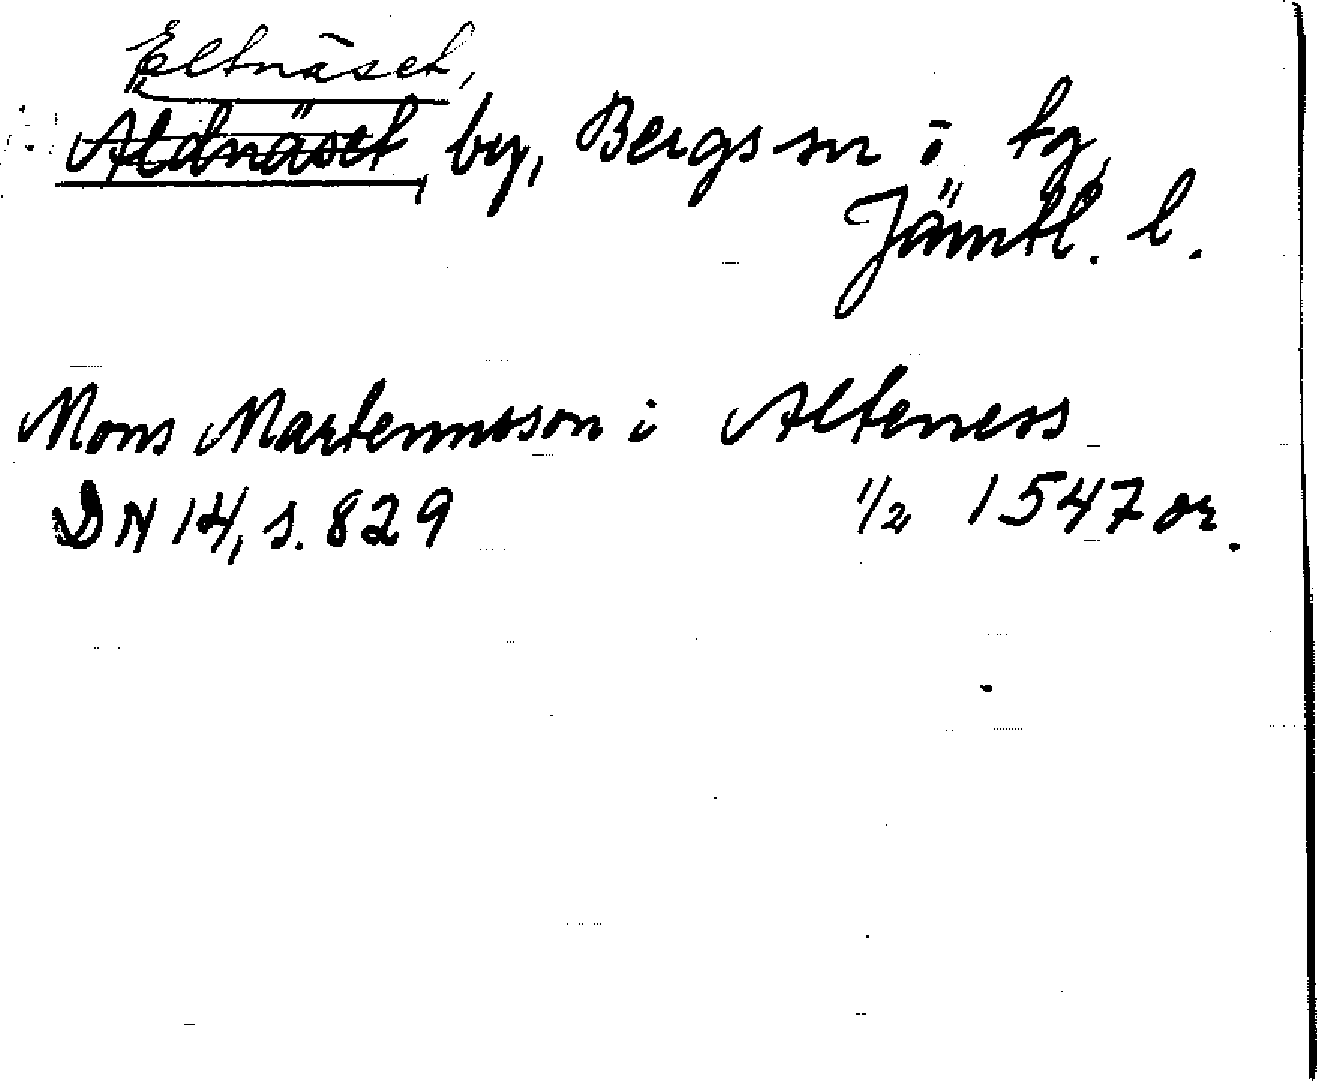 Eltnäset,
Aldnäset, by, Bergs sn i tg,
Jämtl. l.
Mons Martennsson i Alteness
DN 14, s. 829 1/2 1547 or.